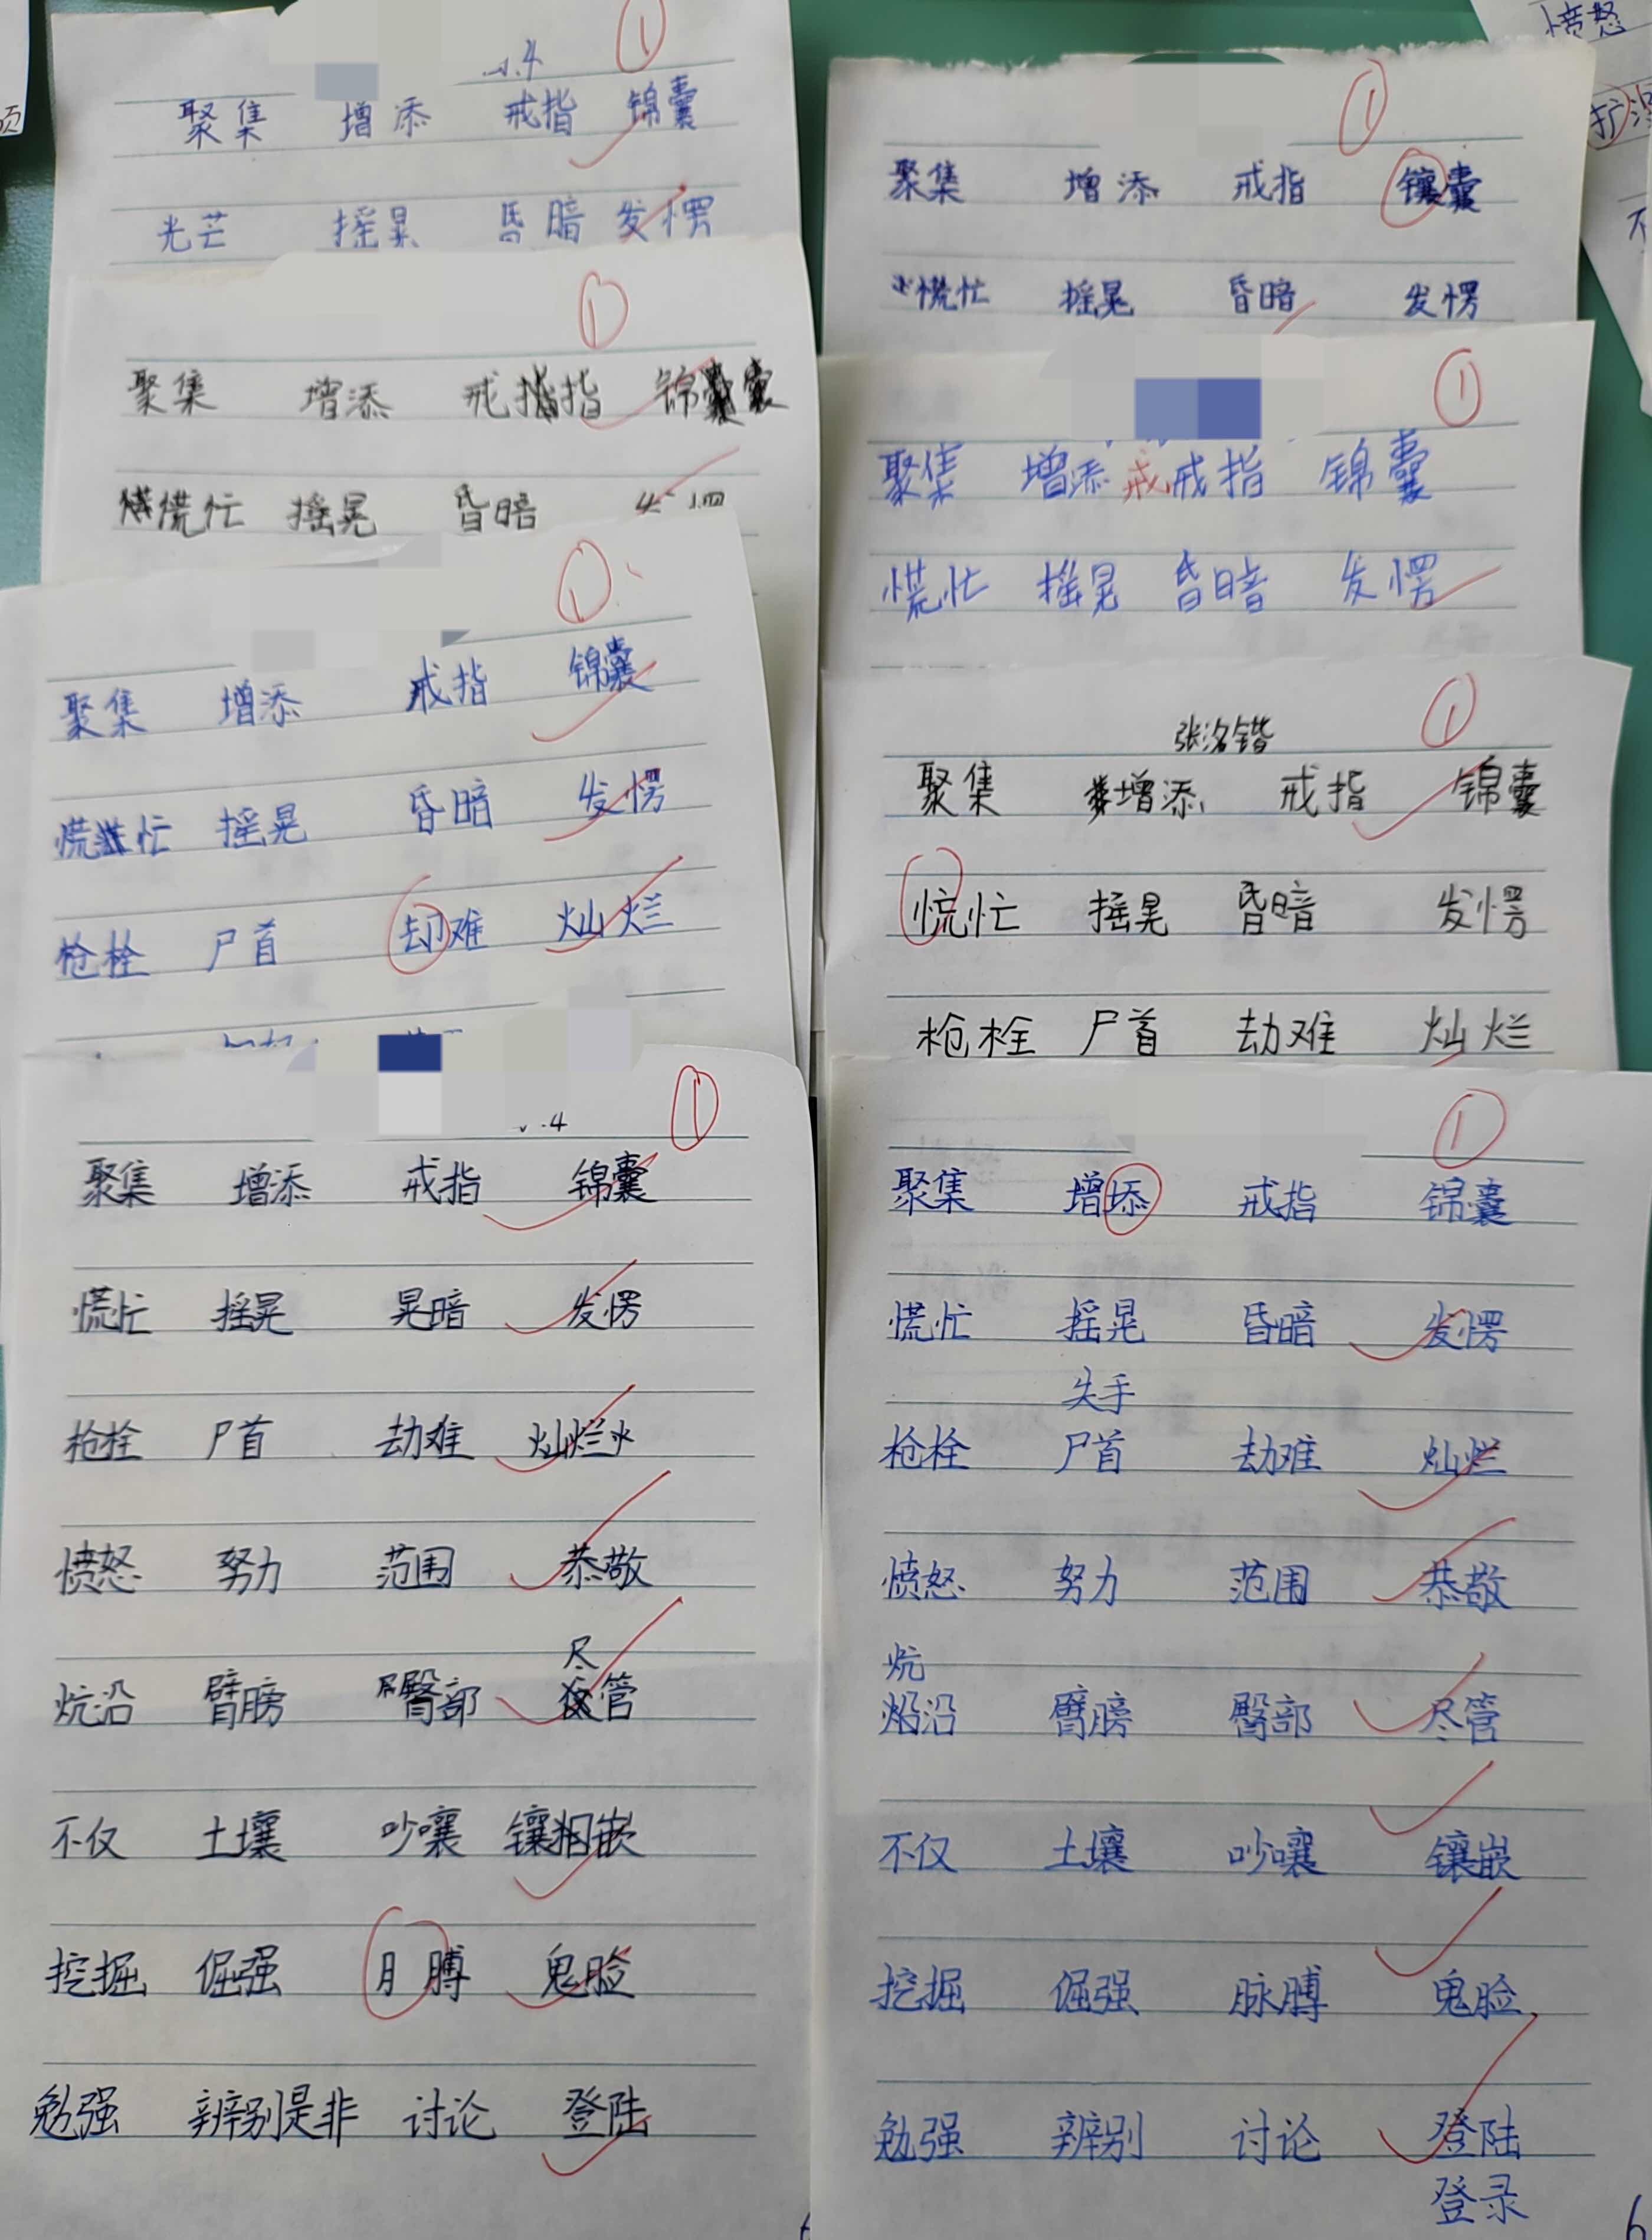 聚集 增添 戒指 锦囊
光芒 摇晃 昏暗 发愣
聚集 增添 戒指 锦囊
慌忙 摇晃 昏暗
聚集 增添 戒指 锦囊
慌忙 摇晃 昏暗 发愣
枪栓 尸首 却难 灿烂
.4
聚集 增添 戒指 锦囊
慌忙 摇晃 晃暗 发愣
枪栓 尸首 劫难 灿烂
愤怒 努力 范围 恭敬
尽
炕沿 臂膀 臀部 管
不仅 土壤 吵嚷 镶嵌
挖掘 倔强 月 膊 鬼脸
勉强 辨别是非 讨论 登陆
愤怒
聚集 增添 戒指 镶囊
慌忙 摇晃 昏暗 发愣
聚集 增添 戒 戒指 锦囊
慌忙 摇晃 昏暗 发愣
张洺锴
聚集 增添 戒指 锦囊
慌忙 摇晃 昏暗 发愣
枪栓 尸首 劫难 灿烂
聚集 增添 戒指 锦囊
慌忙 摇晃 昏暗 发愣
失手
枪栓 尸首 劫难 灿烂
愤怒 努力 范围 恭敬
炕
沿 臂膀 臀部 尽管
不仅 土壤 吵嚷 镶嵌
挖掘 倔强 脉膊 鬼脸
勉强 辨别 讨论 登陆
登录